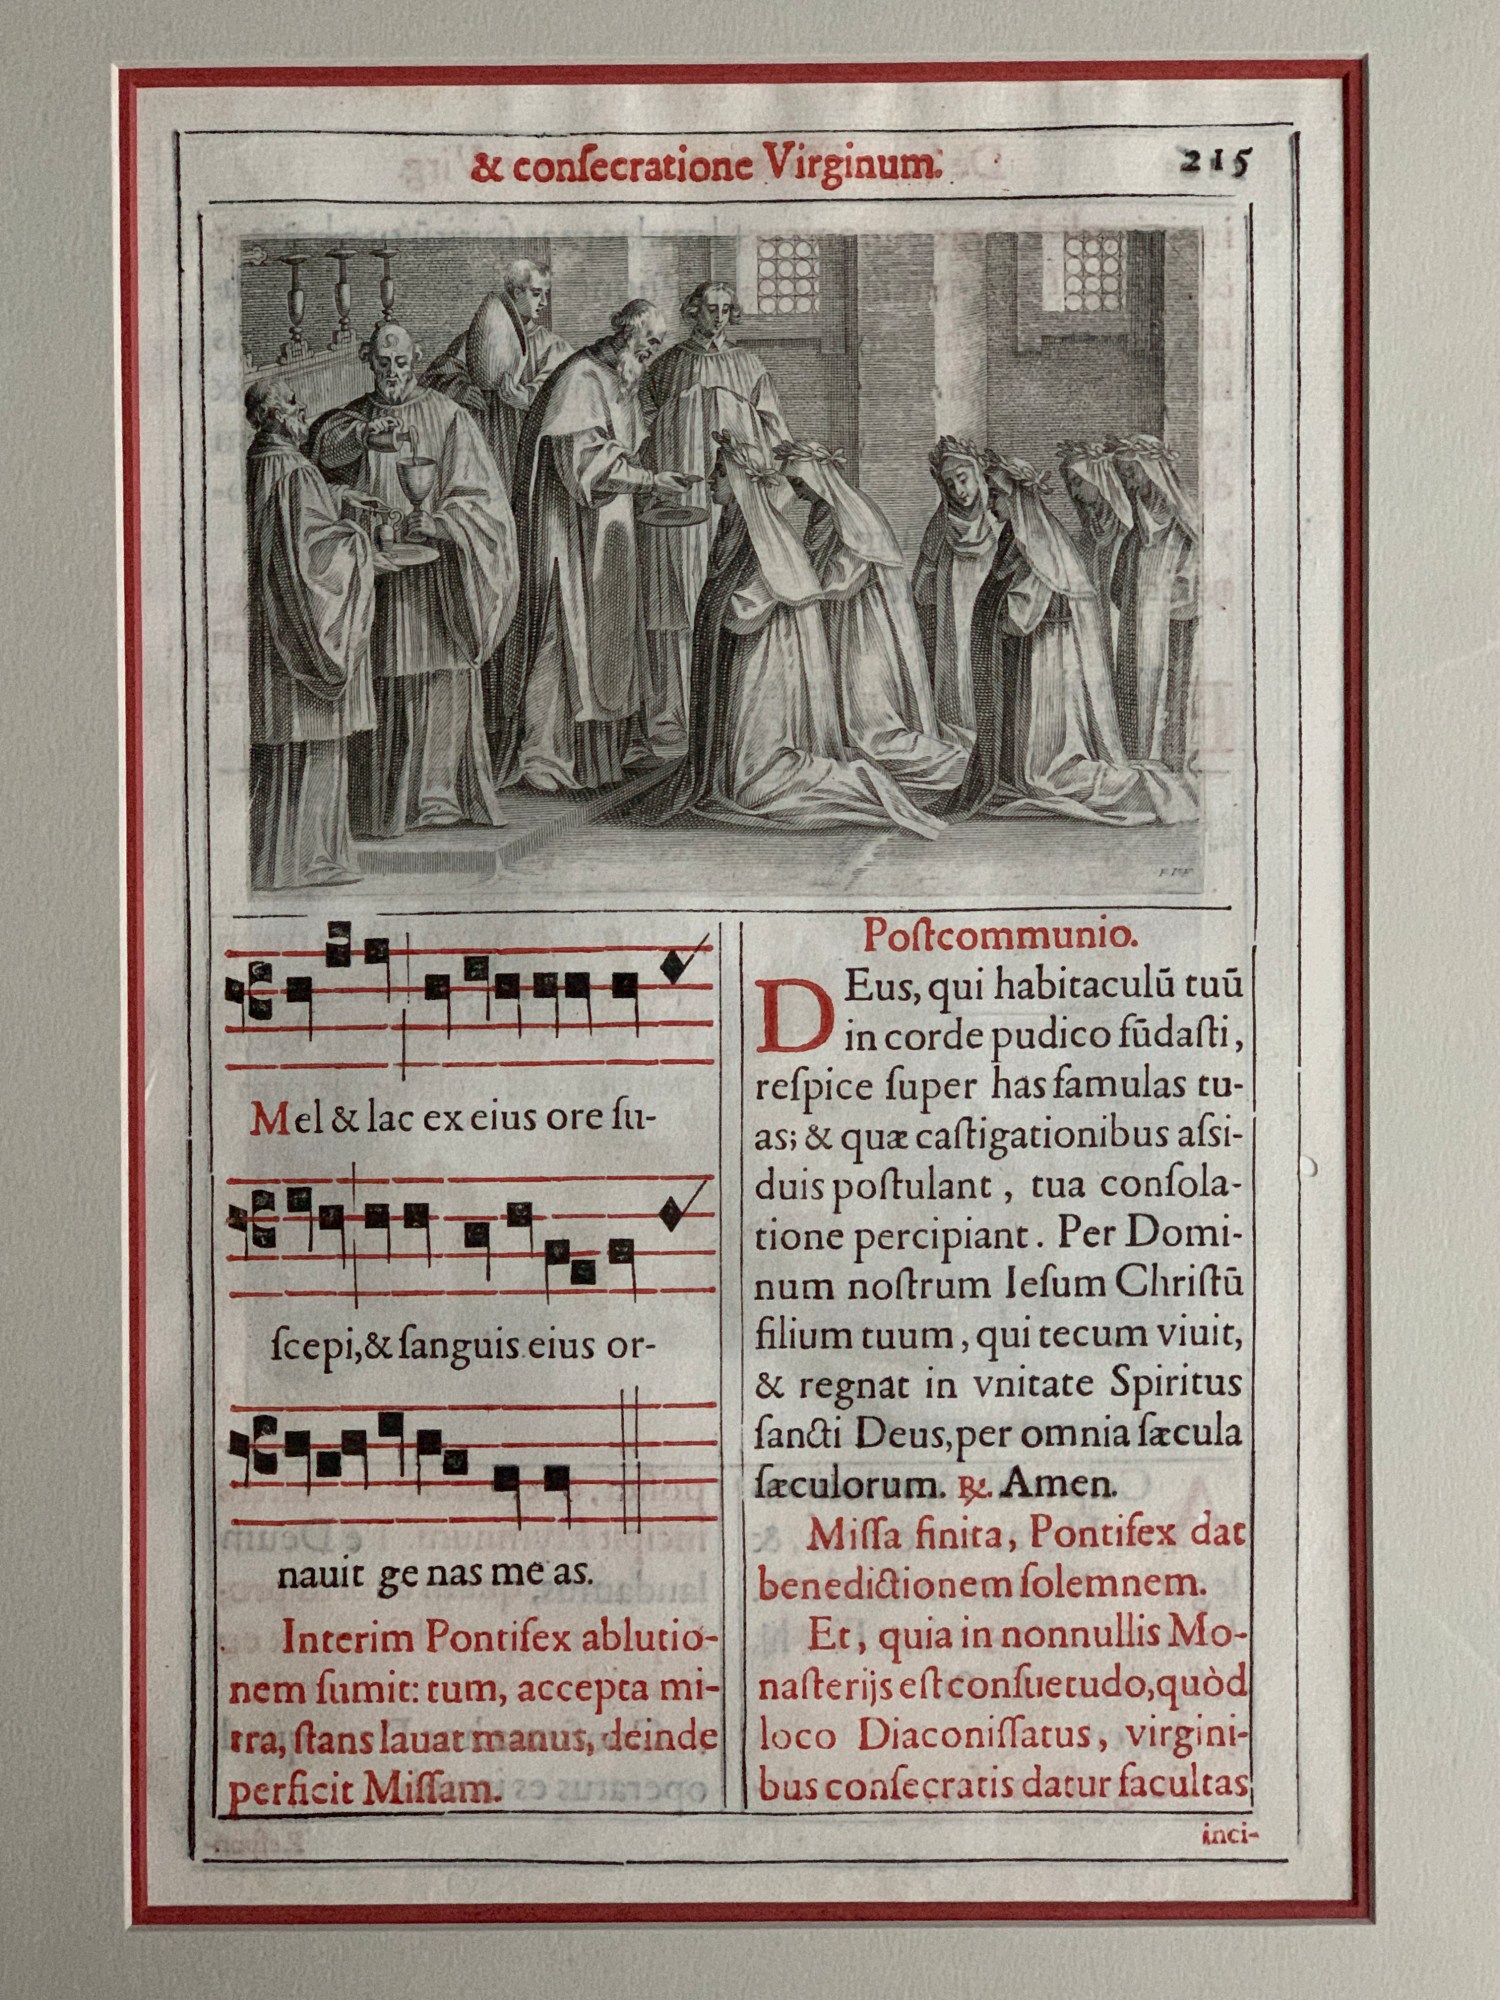 & conſecratione Virginum.
215
Mel & lac ex eius ore ſu-
ſcepi,& ſanguis eius or-
nauit ge nas me as.
Interim Pontifex ablutio-
nem ſumit: tum, accepta mi-
tra, ſtans lauat manus, deinde
perficit Miſſam.
Poſtcommunio.
DEus, qui habitaculū tuū
in corde pudico fūdaſti,
reſpice ſuper has famulas tu-
as; & quæ caſtigationibus aſsi-
duis poſtulant, tua conſola-
tione percipiant. Per Domi-
num noſtrum Ieſum Chriſtū
filium tuum, qui tecum viuit,
& regnat in vnitate Spiritus
ſancti Deus, per omnia ſæcula
ſæculorum. ℟. Amen.
Miſſa finita, Pontifex dat
benedictionem ſolemnem.
Et, quia in nonnullis Mo-
naſterijs eſt conſuetudo, quòd
loco Diaconiſſatus, virgini-
bus conſecratis datur facultas
inci-